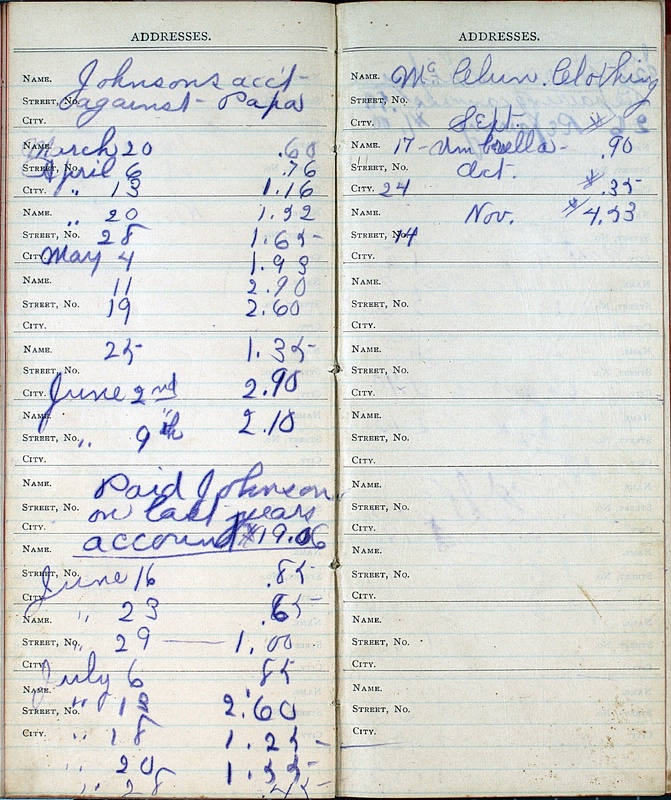 ADDRESSES.
NAME. Johnsons acc't-
STREET, No. against- Papa
CITY.
NAME. March 20 .60
STREET, No. April 6 .76
CITY. " 13 1.16
NAME. " 20 1.32
STREET, No. 28 1.65-
CITY. May 4 1.93
NAME. 11 2.90
STREET, No. 19 2.60
CITY.
NAME. 25- 1.35-
STREET, No.
CITY. June 2nd 2.90
NAME.
STREET, No. " 9th 2.10
CITY.
NAME. Paid Johnson
STREET, No. on last years
CITY. account $19.06
NAME.
STREET, No. June 16 .85-
CITY.
NAME. " 23 .65-
STREET, No. " 29 — 1.00
CITY. July 6 85
NAME.
STREET, No. " 2.60
CITY. " 18 1.25-
" 20 1.35-
" 28
ADDRESSES.
NAME. Mc Clun. Clothing
STREET, No.
CITY. Sept. $
NAME. 17- Umbrella- .90
STREET, No. Oct.
CITY. 24 $.35
NAME. Nov. $4.53
STREET, No. 14
CITY.
NAME.
STREET, No.
CITY.
NAME.
STREET, No.
CITY.
NAME.
STREET, No.
CITY.
NAME.
STREET, No.
CITY.
NAME.
STREET, No.
CITY.
NAME.
STREET, No.
CITY.
NAME.
STREET, No.
CITY.